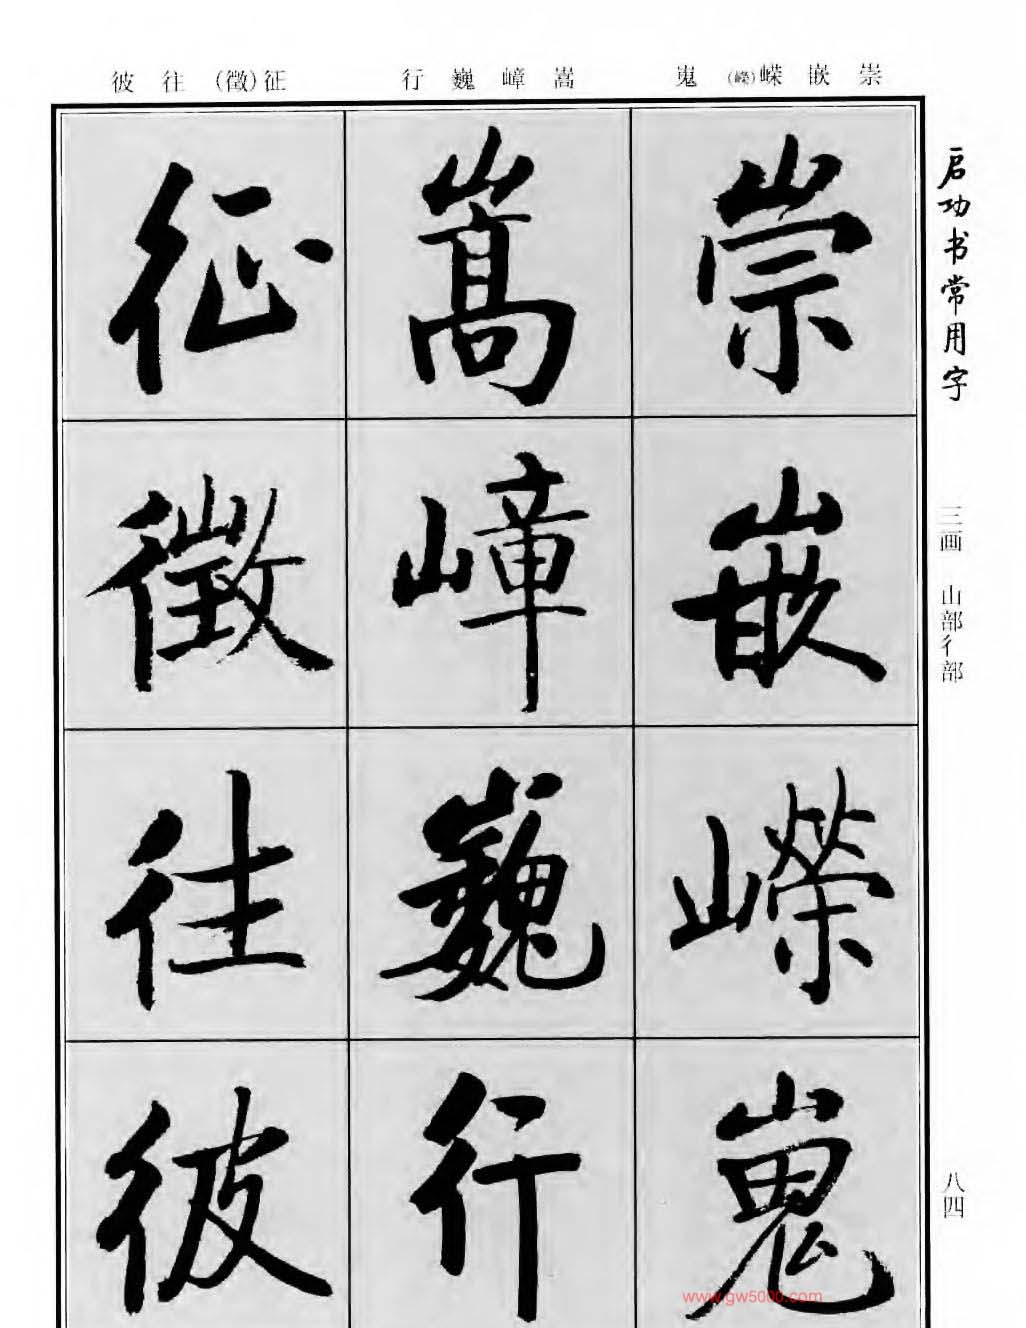 崇嵌嵘(嶸)嵬
嵩嶂巍行
征(徵)往彼
启功书常用字
三画 山部彳部
八四
崇
嵌
嶸
嵬
嵩
嶂
巍
行
征
徵
往
彼
www.gw5000.com